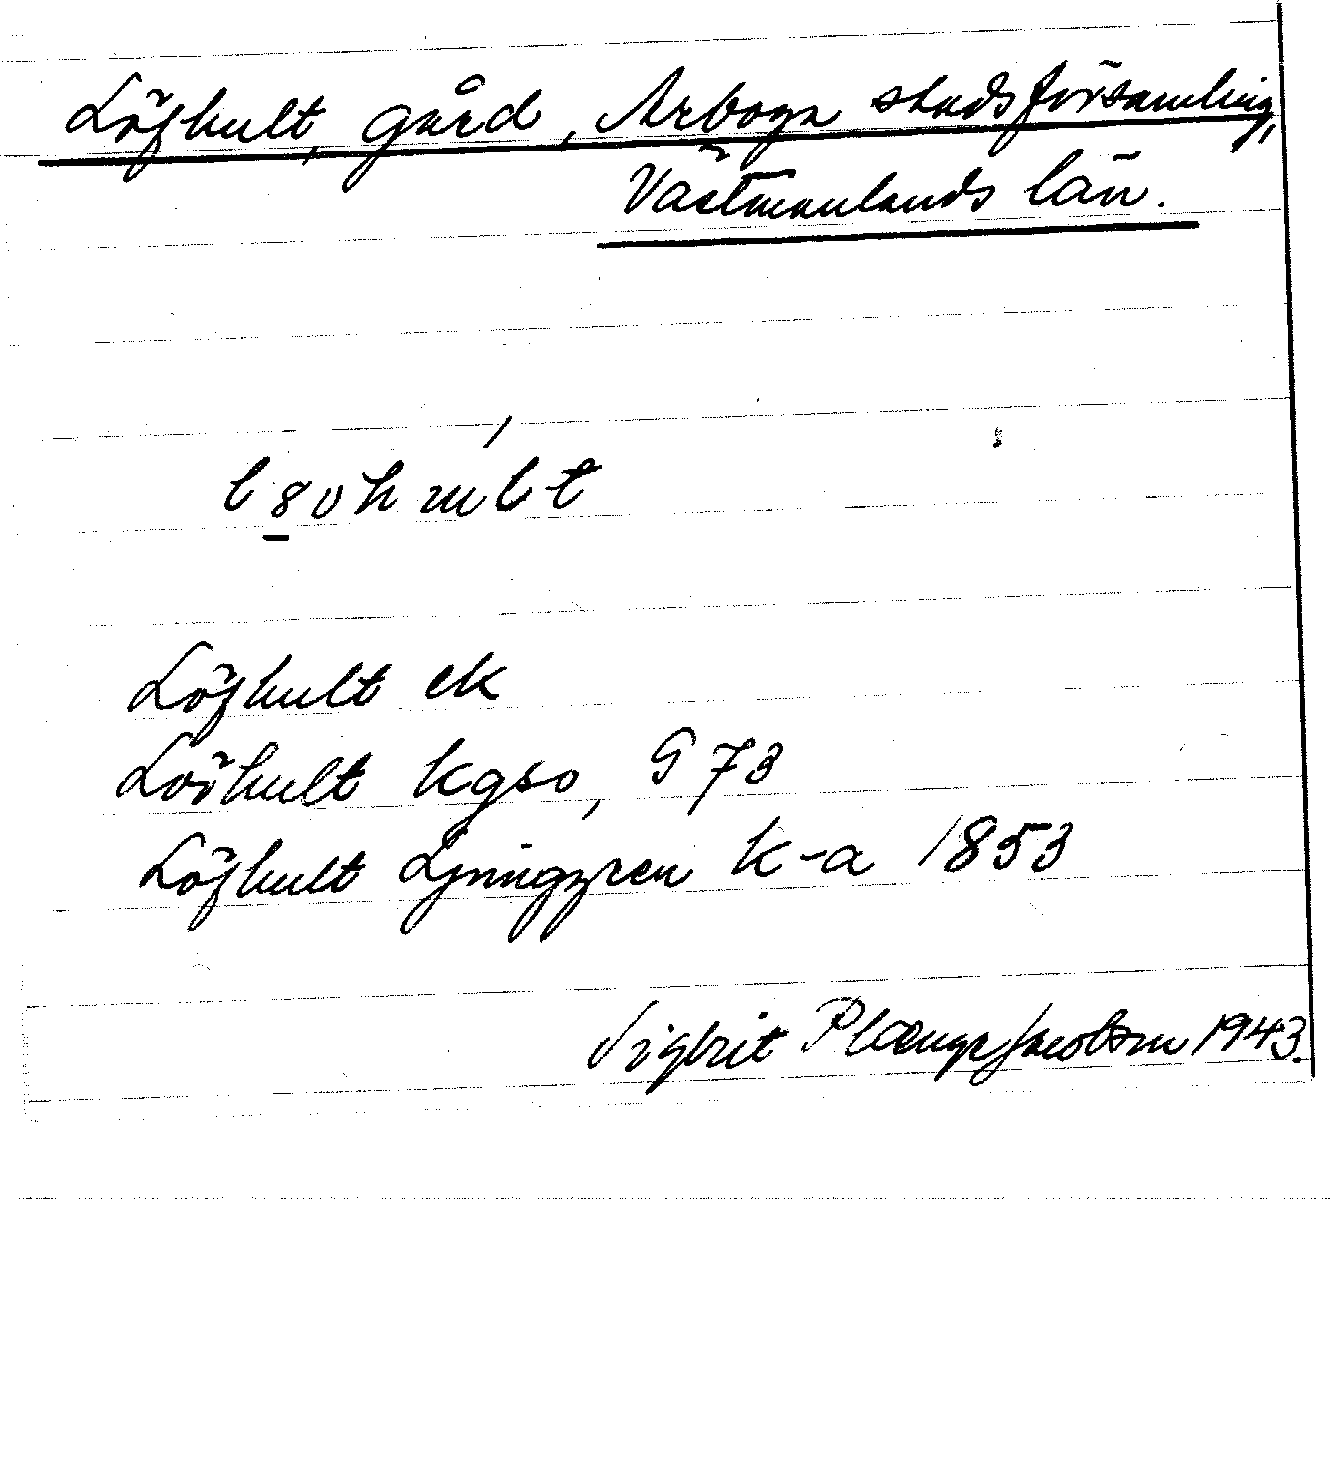 Löfhult, gård, Arboga stadsförsamling,
Västmanlands län.
l8vhult
Löfhult ek
Lövhult kgso, G 73
Löfhult Ljunggren k-a 1853
Sigbrit Plænge Jacobson 1943.